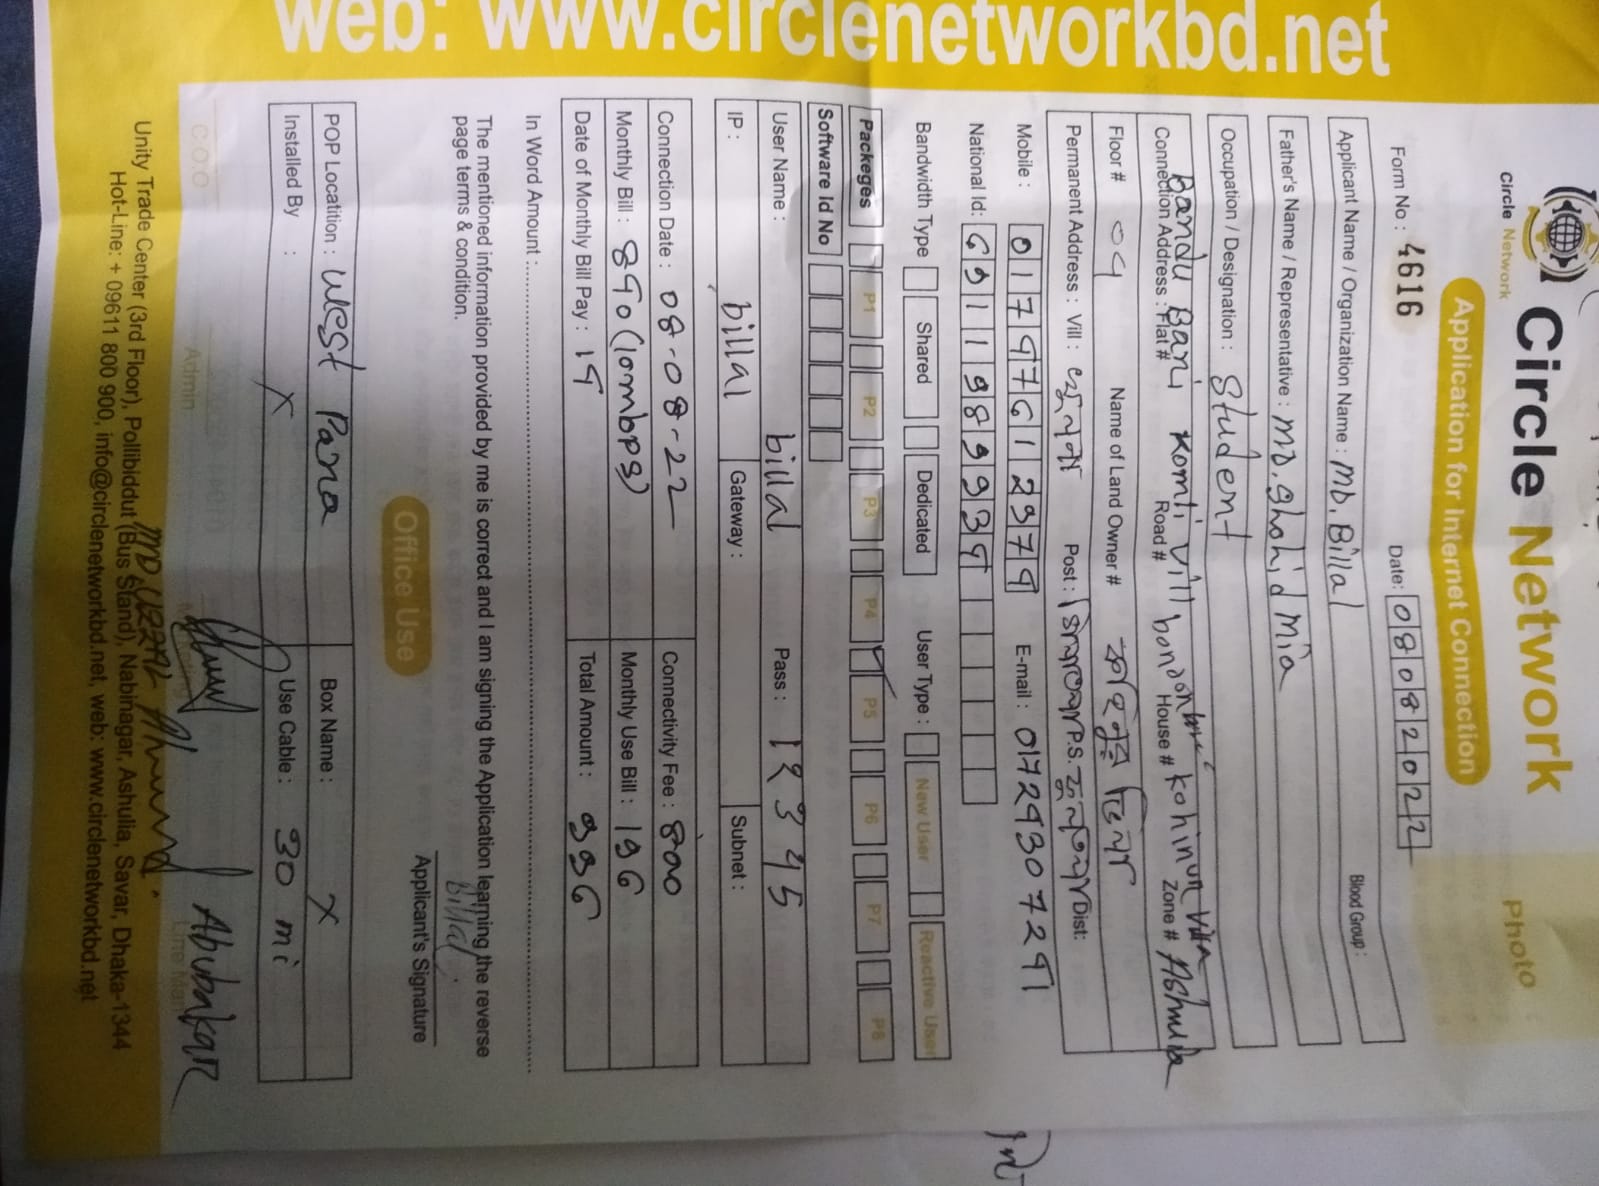 Circle Network
circle Network
Photo
Application for Internet Connection
Form No : 4616 Date: 08082022
Applicant Name / Organization Name : MD. Billal Blood Group:
Father's Name / Representative : MD. Shohid Mia
Occupation / Designation : Student
Bandu Bari Komti Vill kohinur Villa
Connection Address : Flat # Road # House # Zone # Ashulia
Floor # 04 Name of Land Owner #
Permanent Address : Vill : Post : P.S. Dist:
Mobile : E-mail :
National Id:
Bandwidth Type Shared Dedicated User Type : New User Reactive User
Packeges P1 P2 P3 P4 P5 P6 P7 P8
Software Id No
User Name : billal Pass : 12345
IP : billal Gateway : Subnet :
Connection Date : 08-08-22 Connectivity Fee : 800
Monthly Bill : (10mbps) Monthly Use Bill : 196
Date of Monthly Bill Pay : Total Amount : 996
In Word Amount :
The mentioned information provided by me is correct and I am signing the Application learning the reverse
page terms & condition.
Billal
Applicant's Signature
Office Use
POP Locatition : West Para Box Name : X
Installed By : X Use Cable : 30 mi
C.O.O Admin
Abubakar
Unity Trade Center (3rd Floor), Pollibiddut (Bus Stand), Nabinagar, Ashulia, Savar, Dhaka-1344
Hot-Line: + 09611 800 900, info@circlenetworkbd.net, web: www.circlenetworkbd.net
web: www.circlenetworkbd.net